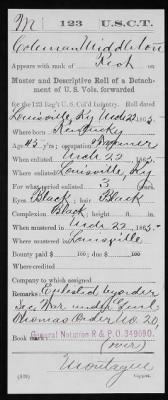 M | 123 | U.S.C.T.
Coleman Middleton
Appears with rank of
Muster and Descriptive Roll of a Detach-
ment of U. S. Vols. forwarded
for the 123 Reg't U. S. Col'd Infantry. Roll dated
Louisville, Ky 1865.
Where born Kentucky
Age 43 y'rs; occupation
When enlisted 22, 1865.
Where enlisted Louisville, Ky
For what period enlisted 3 years.
Eyes Black; hair Black
Complexion Black; height ft. in.
When mustered in 22, 1865.
Where mustered in Louisville
Bounty paid $ 100; due $ 100
Where credited
Company to which assigned
Remarks: Enlisted by order
Sec War under Genl
Thomas Order No. 20,
General Notation R & P O. 349090.
Book mark:
(over)
Montague
Copyist.